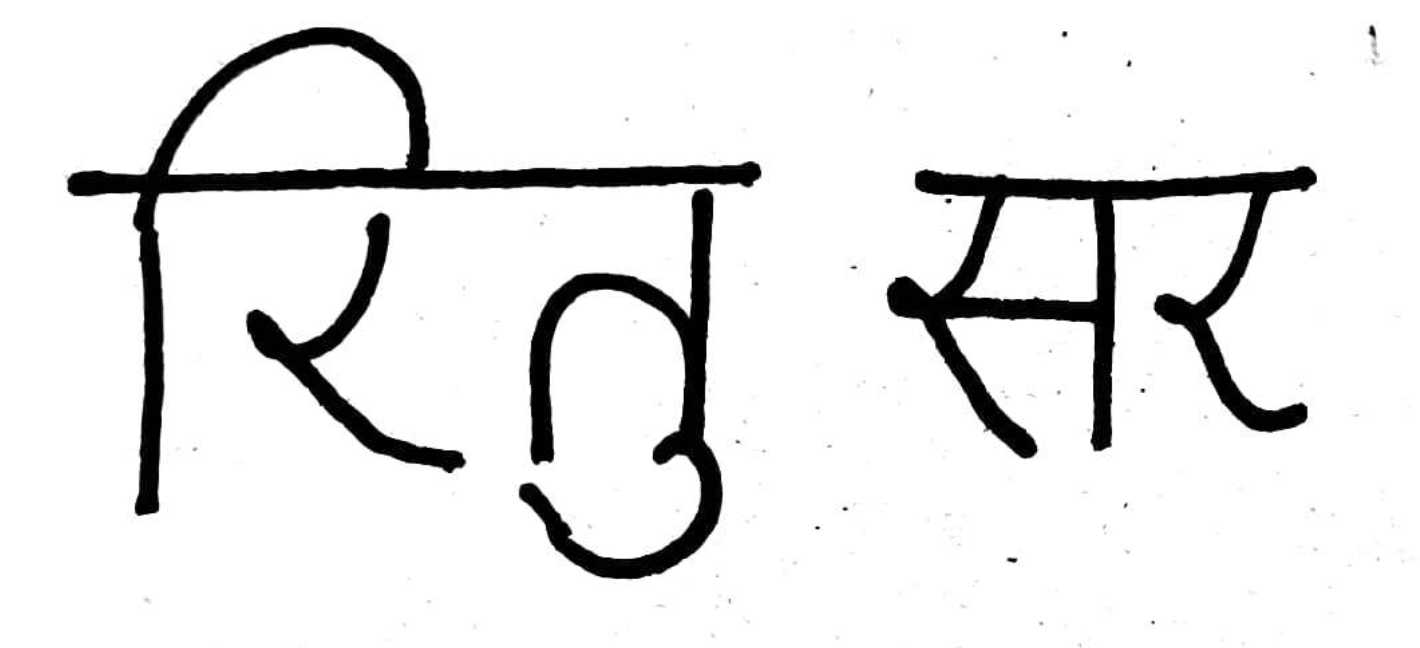 रितु सर